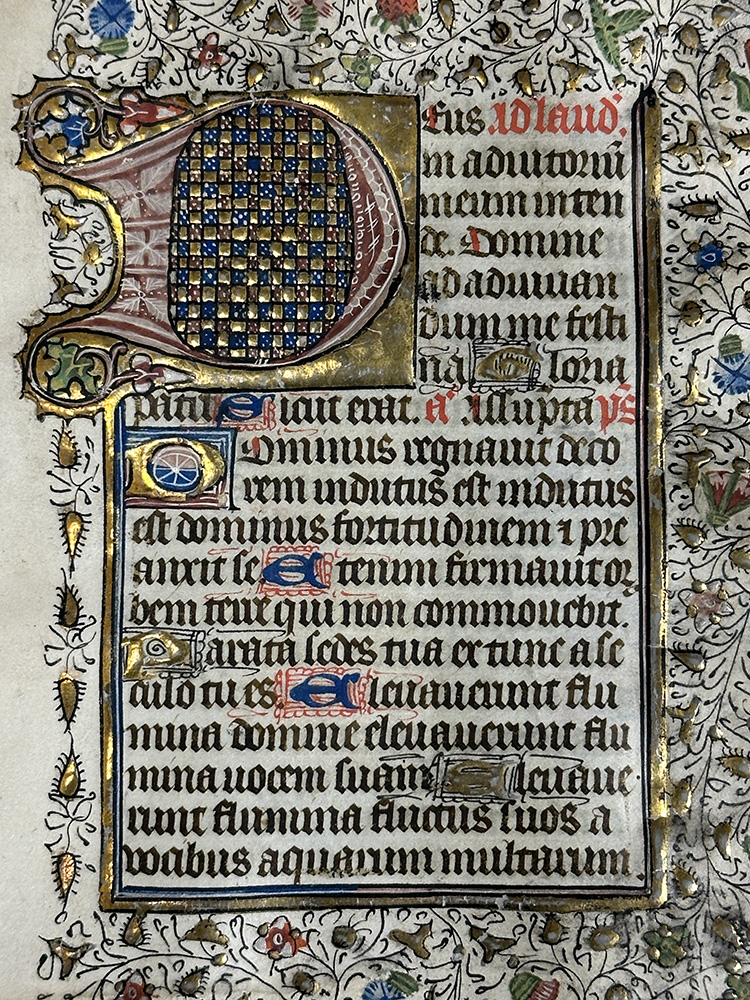 Deus. Ad laud.
in adiutoriū
meum inten
de. Domine
ad adiuuan
dum me festi
na Gloria
patri Sicut erat. añ Assumpta ps̄
Dominus regnauit deco
rem indutus est indutus
est dominus fortitudinem ⁊ pre
cinxit se Etenim firmauit orꝫ
bem terre qui non commouebit.
Parata sedes tua ex tunc a se
culo tu es. Eleuauerunt flu
mina domine eleuauerunt flu
mina uocem suam Eleuaue
runt flumina fluctus suos a
uocibus aquarum multarum.